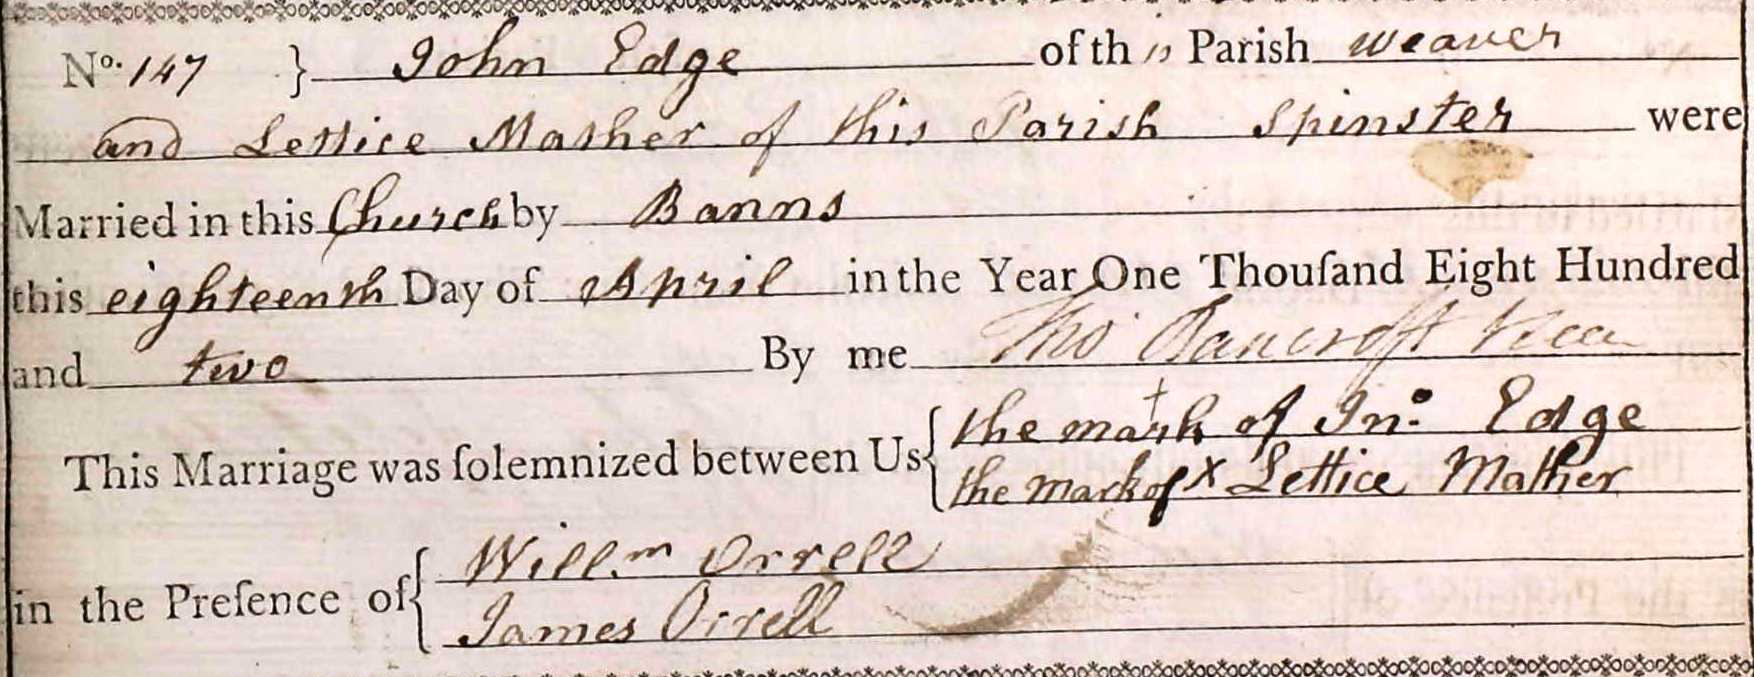 No. 147 } John Edge of this Parish weaver
and Lettice Mather of this Parish Spinster were
Married in this Church by Banns
this eighteenth Day of April in the Year One Thouſand Eight Hundred
and two By me Tho Bancroft Vicar
This Marriage was ſolemnized between Us { the mark + of Jno. Edge
the mark of X Lettice Mather
in the Preſence of { Willm Orrell
James Orrell